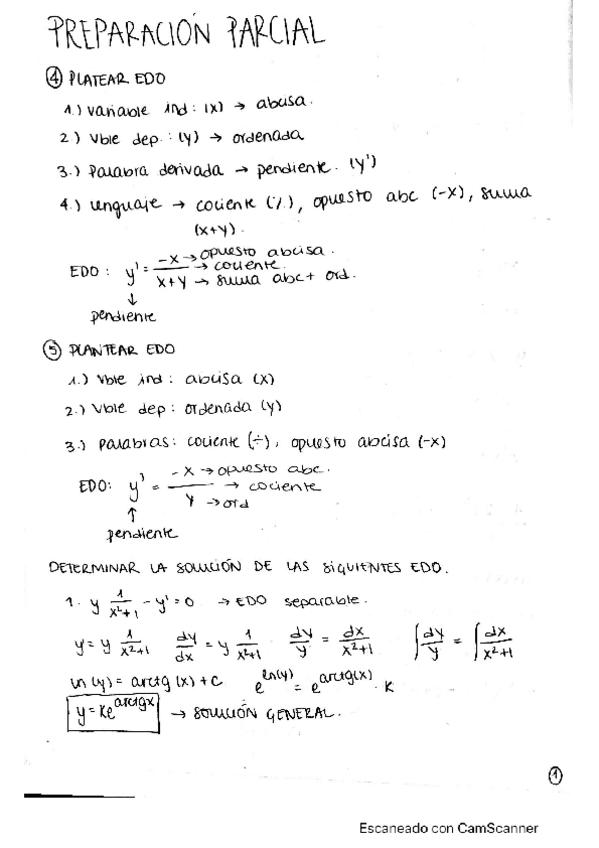 PREPARACIÓN PARCIAL
④ PLATEAR EDO
1.) variable ind: (x) → abcisa.
2.) Vble dep.: (y) → ordenada
3.) Palabra derivada → pendiente. (y')
4.) Lenguaje → cociente (÷), opuesto abc (-x), suma
(x+y).
EDO: y' = -x / x+y → opuesto abcisa. → cociente. → suma abc + ord.
↓
pendiente
⑤ PLANTEAR EDO
1.) Vble ind: abcisa (x)
2.) Vble dep: ordenada (y)
3.) Palabras: cociente (÷), opuesto abcisa (-x)
EDO: y' = -x / y → opuesto abc. → cociente → ord
↑
pendiente
DETERMINAR LA SOLUCIÓN DE LAS SIGUIENTES EDO.
1. y 1/x²+1 - y' = 0 → EDO separable.
y' = y 1/x²+1 dy/dx = y 1/x²+1 dy/y = dx/x²+1 ∫dy/y = ∫dx/x²+1
ln(y) = arctg(x) + c e^ln(y) = e^arctg(x) · K
y = Ke^arctgx → SOLUCIÓN GENERAL.
①
Escaneado con CamScanner